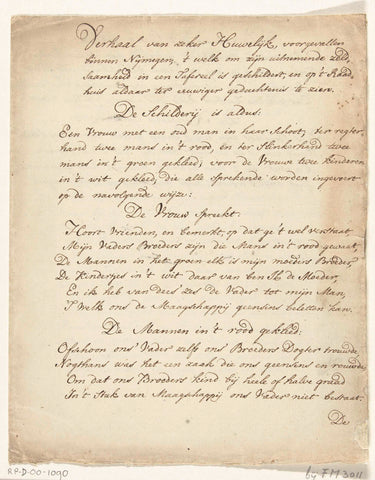 Verhaal van zeker Huwelijk, voorgevallen
binnen Nijmegen, 't welk om zijn uitnemende zeld,,
saamheid in een Tafereel is geschildert, en op't Raad,,
huis aldaar ter eeuwiger gedachtenis te zien.
De Schilderij is aldus:
Een Vrouw met een oud man in haar Schoot, ter regter,,
hand twee mans in't rood, en ter Slinkerhand twee
mans in't groen gekleed, voor de Vrouwe twee kinderen
in't wit gekleed, die alle sprekende worden ingevoert
op de navolgende wijze:
De Vrouw Spreekt.
Hoort Vrienden, en bemerkt, op dat ge't wel verstaat
Mijn Vaders Broeders zijn die Mans in't rood gewaat,
De Mannen in het groen elk is mijn moeders Broeder,
De Kindertjes in't wit daar van ben Ik de Moeder,
En ik heb van deez' zes de Vader tot mijn Man,
't Welk ons de Maagschappij geensins beletten kan.
De Mannen in't rood gekleed.
Ofschoon ons Vader zelfs ons Broeders Dogter trouwde,
Nogthans was het een zaak die ons geensins en rouwde,
Om dat ons Broeders kind bij heele of halve graad
In't Stuk van Maagschappij ons Vader niet bestaat.
De
RP-D-00-1090
by FM 3011